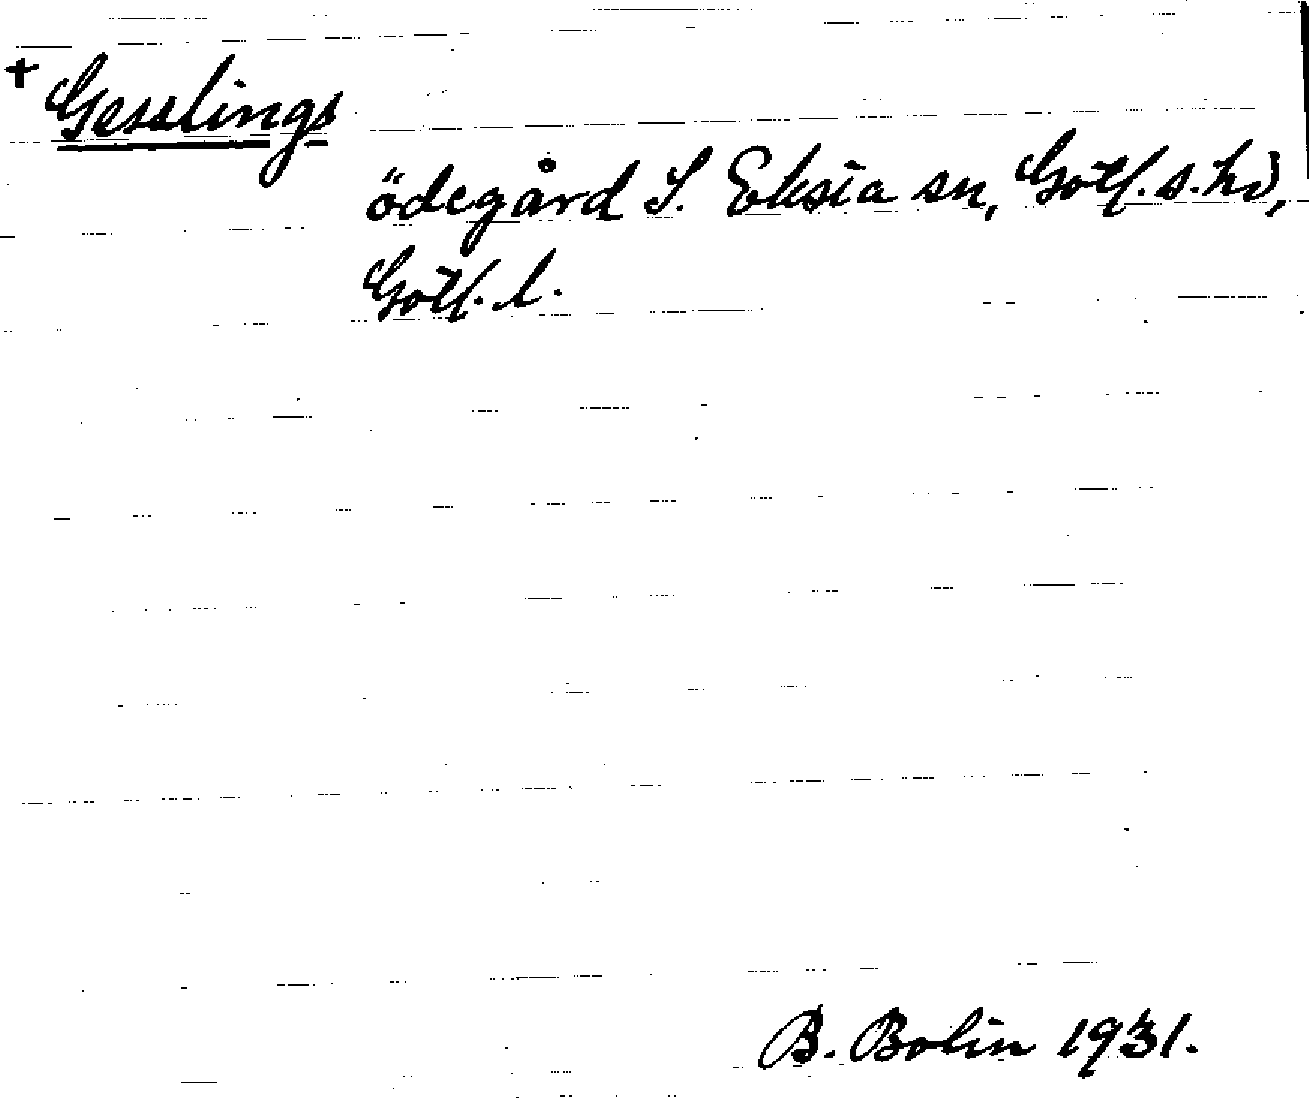 + Gesslings
ödegård I. Eksta sn, Gotl. s. hd,
Gotl. l.
B. Bolin 1931.